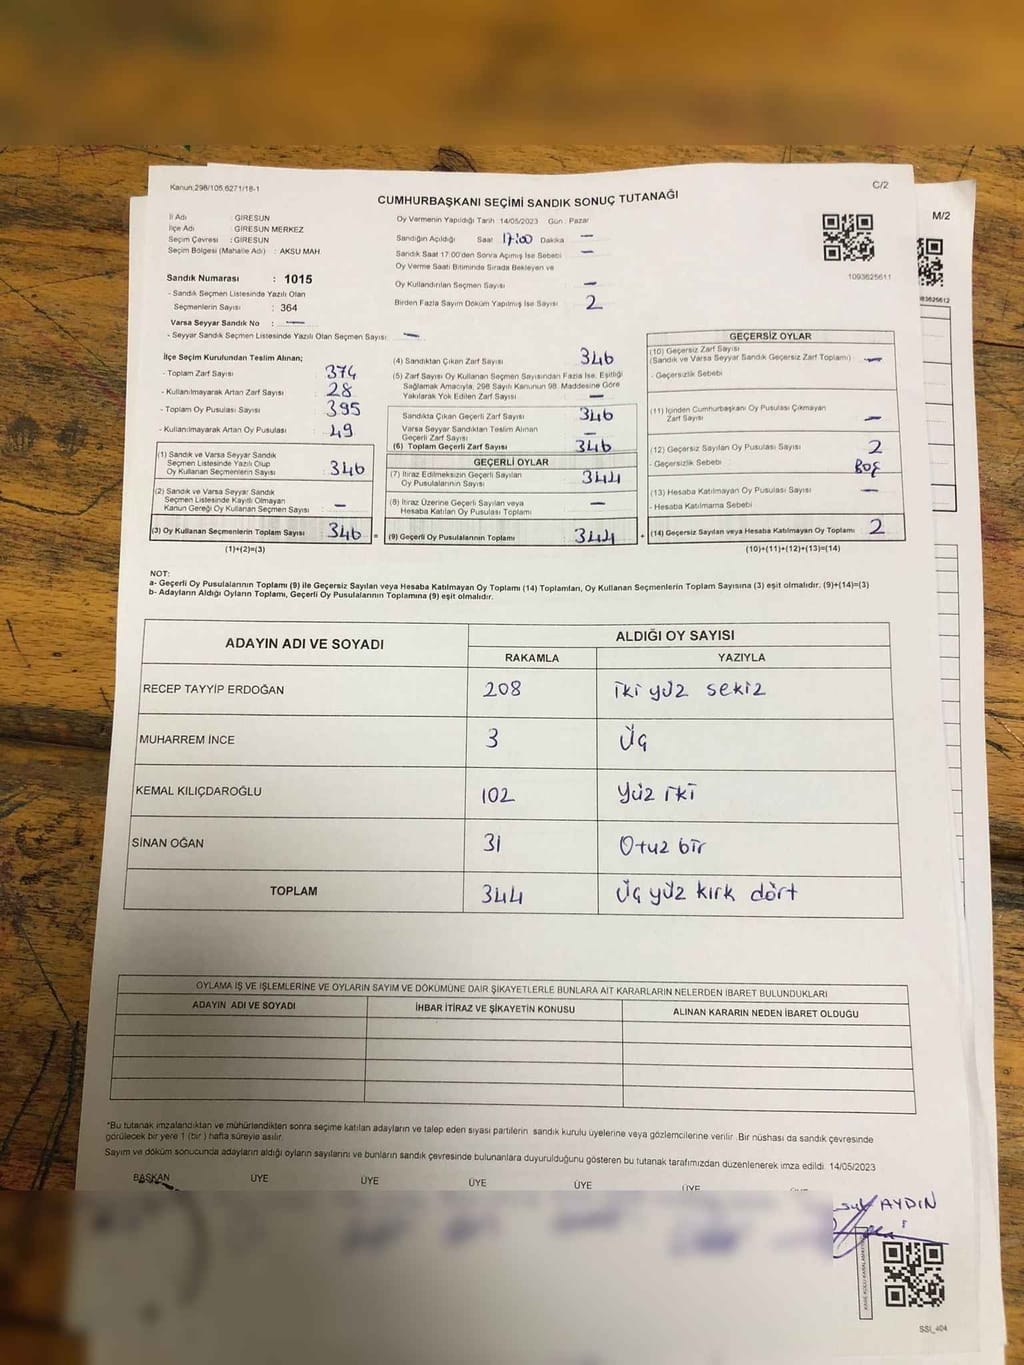 Kanun.298/105,6271/18-1
C/2
CUMHURBAŞKANI SEÇİMİ SANDIK SONUÇ TUTANAĞI
M/2
İl Adı : GİRESUN
İlçe Adı : GİRESUN MERKEZ
Seçim Çevresi : GİRESUN
Seçim Bölgesi (Mahalle Adı) : AKSU MAH.
Sandık Numarası : 1015
- Sandık Seçmen Listesinde Yazılı Olan
Seçmenlerin Sayısı : 364
Varsa Seyyar Sandık No : —
- Seyyar Sandık Seçmen Listesinde Yazılı Olan Seçmen Sayısı: —
Oy Vermenin Yapıldığı Tarih 14/05/2023 Gün : Pazar
Sandığın Açıldığı Saat 17:00 Dakika —
Sandık Saat 17:00'den Sonra Açımış İse Sebebi —
Oy Verme Saati Bitiminde Sırada Bekleyen ve
Oy Kullandırılan Seçmen Sayısı —
Birden Fazla Sayım Döküm Yapılmış İse Sayısı 2
1093625611
İlçe Seçim Kurulundan Teslim Alınan;
- Toplam Zarf Sayısı : 374
- Kullanılmayarak Artan Zarf Sayısı : 28
- Toplam Oy Pusulası Sayısı : 395
- Kullanılmayarak Artan Oy Pusulası : 49
(1) Sandık ve Varsa Seyyar Sandık
Seçmen Listesinde Yazılı Olup
Oy Kullanan Seçmenlerin Sayısı : 346
(2) Sandık ve Varsa Seyyar Sandık
Seçmen Listesinde Kayıtlı Olmayan
Kanun Gereği Oy Kullanan Seçmen Sayısı : —
(3) Oy Kullanan Seçmenlerin Toplam Sayısı : 346
(1)+(2)=(3)
(4) Sandıktan Çıkan Zarf Sayısı 346
(5) Zarf Sayısı Oy Kullanan Seçmen Sayısından Fazla İse, Eşitliği
Sağlamak Amacıyla, 298 Sayılı Kanunun 98. Maddesine Göre
Yakılarak Yok Edilen Zarf Sayısı —
Sandıkta Çıkan Geçerli Zarf Sayısı 346
Varsa Seyyar Sandıktan Teslim Alınan
Geçerli Zarf Sayısı —
(6) Toplam Geçerli Zarf Sayısı 346
GEÇERLİ OYLAR
(7) İtiraz Edilmeksizin Geçerli Sayılan
Oy Pusulalarının Sayısı 344
(8) İtiraz Üzerine Geçerli Sayılan veya
Hesaba Katılan Oy Pusulası Toplamı —
= (9) Geçerli Oy Pusulalarının Toplamı 344
GEÇERSİZ OYLAR
(10) Geçersiz Zarf Sayısı
(Sandık ve Varsa Seyyar Sandık Geçersiz Zarf Toplamı) —
- Geçersizlik Sebebi
(11) İçinden Cumhurbaşkanı Oy Pusulası Çıkmayan
Zarf Sayısı —
(12) Geçersiz Sayılan Oy Pusulası Sayısı 2
- Geçersizlik Sebebi BOŞ
(13) Hesaba Katılmayan Oy Pusulası Sayısı —
- Hesaba Katılmama Sebebi
+ (14) Geçersiz Sayılan veya Hesaba Katılmayan Oy Toplamı 2
(10)+(11)+(12)+(13)=(14)
NOT:
a- Geçerli Oy Pusulalarının Toplamı (9) ile Geçersiz Sayılan veya Hesaba Katılmayan Oy Toplamı (14) Toplamları, Oy Kullanan Seçmenlerin Toplam Sayısına (3) eşit olmalıdır. (9)+(14)=(3)
b- Adayların Aldığı Oyların Toplamı, Geçerli Oy Pusulalarının Toplamına (9) eşit olmalıdır.
ADAYIN ADI VE SOYADI
ALDIĞI OY SAYISI
RAKAMLA YAZIYLA
RECEP TAYYİP ERDOĞAN 208 iki yüz sekiz
MUHARREM İNCE 3 Üç
KEMAL KILIÇDAROĞLU 102 Yüz iki
SİNAN OĞAN 31 Otuz bir
TOPLAM 344 Üç yüz kırk dört
OYLAMA İŞ VE İŞLEMLERİNE VE OYLARIN SAYIM VE DÖKÜMÜNE DAİR ŞİKAYETLERLE BUNLARA AİT KARARLARIN NELERDEN İBARET BULUNDUKLARI
ADAYIN ADI VE SOYADI İHBAR İTİRAZ VE ŞİKAYETİN KONUSU ALINAN KARARIN NEDEN İBARET OLDUĞU
*Bu tutanak imzalandıktan ve mühürlendikten sonra seçime katılan adayların ve talep eden siyasi partilerin sandık kurulu üyelerine veya gözlemcilerine verilir. Bir nüshası da sandık çevresinde
görülecek bir yere 1 (bir) hafta süreyle asılır.
Sayım ve döküm sonucunda adayların aldığı oyların sayılarını ve bunların sandık çevresinde bulunanlara duyurulduğunu gösteren bu tutanak tarafımızdan düzenlenerek imza edildi. 14/05/2023
BAŞKAN ÜYE ÜYE ÜYE ÜYE ÜYE
AYDIN
SSİ_404